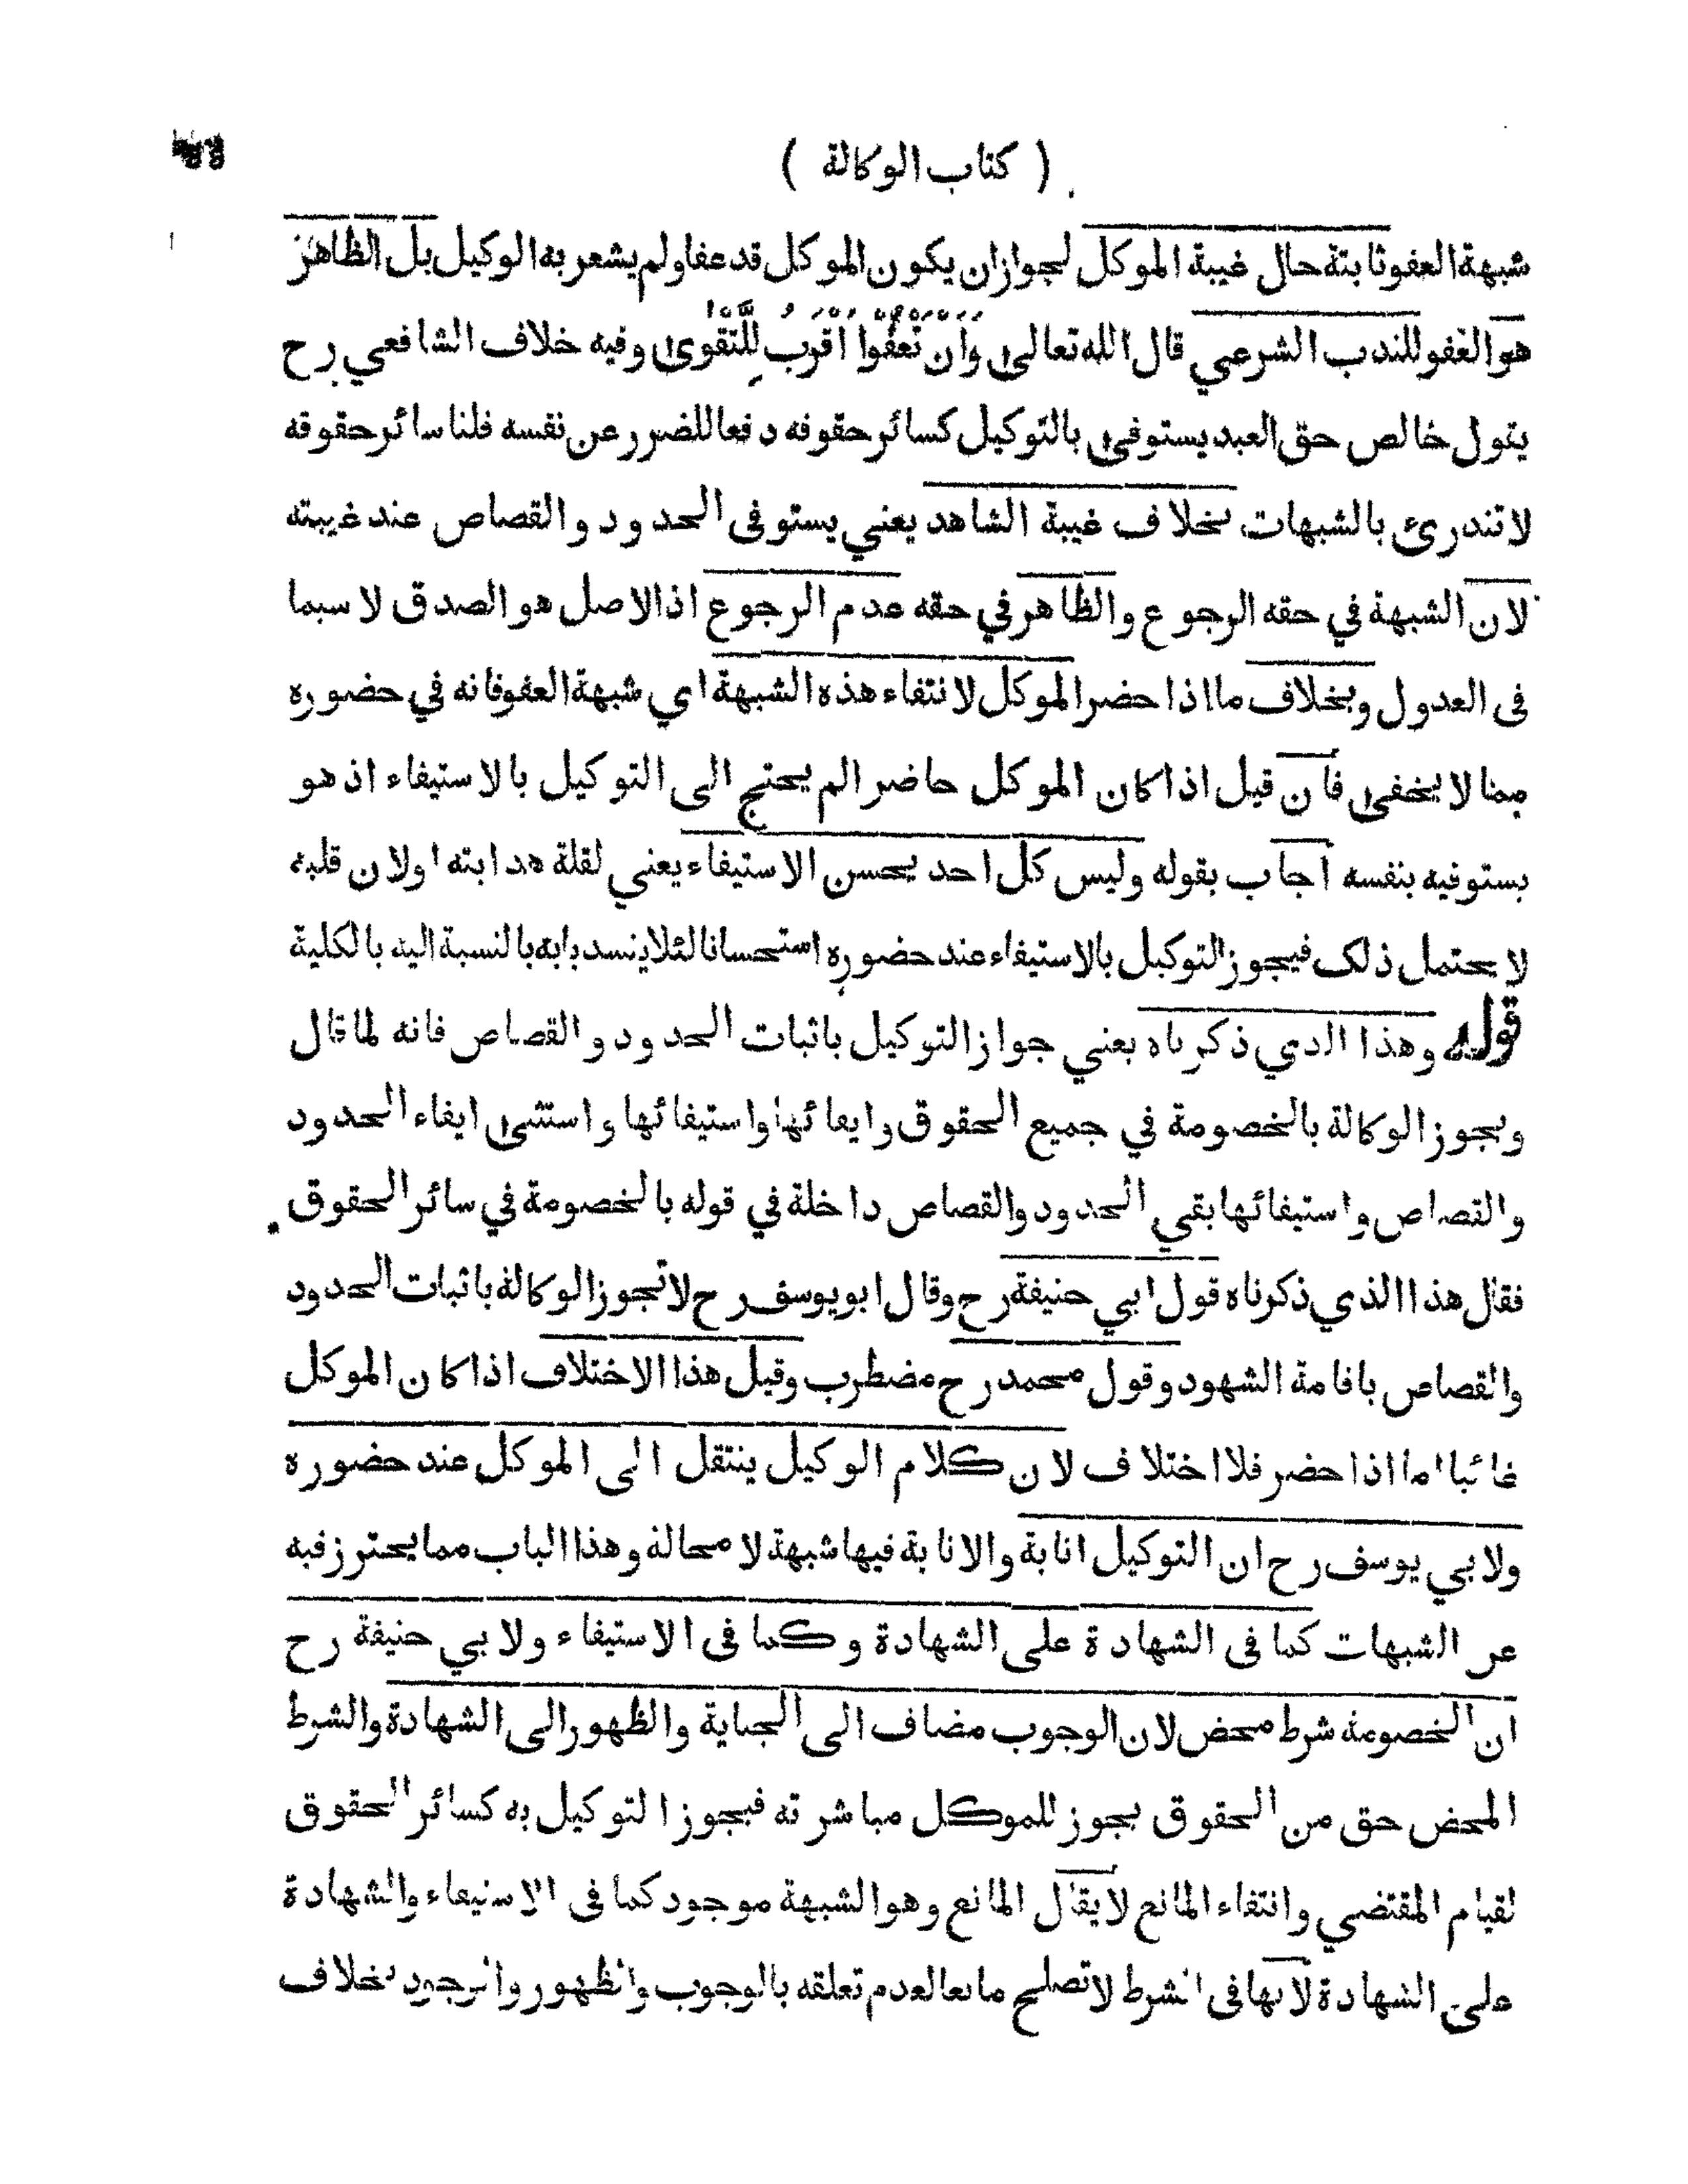 ( كتاب الوكالة )
شبهة العفو ثابتة حال غيبة الموكل لجواز ان يكون الموكل قد عفا ولم يشعر به الوكيل بل الظاهر
هو العفو للندب الشرعي قال الله تعالى وَاَنْ تَعْفُوْا اَقْرَبُ لِلتَّقْوٰى وفيه خلاف الشافعي رح
يقول خالص حق العبد يستوفى بالتوكيل كسائر حقوقه دفعا للضرر عن نفسه قلنا سائر حقوقه
لا تندرئ بالشبهات بخلاف غيبة الشاهد يعني يستوفى الحدود والقصاص عند غيبته
لان الشبهة في حقه الرجوع والظاهر في حقه عدم الرجوع اذ الاصل هو الصدق لا سيما
فى العدول وبخلاف ما اذا حضر الموكل لانتفاء هذه الشبهة اي شبهة العفو فانه في حضوره
مما لا يخفى فان قيل اذا كان الموكل حاضرا لم يحتج الى التوكيل بالاستيفاء اذ هو
يستوفيه بنفسه اجاب بقوله وليس كل احد يحسن الاستيفاء يعني لقلة هدايته او لان قلبه
لا يحتمل ذلك فيجوز التوكيل بالاستيفاء عند حضوره استحسانا لئلا ينسد بابه بالنسبة اليه بالكلية
قوله وهذا الذي ذكرناه يعني جواز التوكيل باثبات الحدود والقصاص فانه لما قال
ويجوز الوكالة بالخصومة في جميع الحقوق وايفائها واستيفائها واستثنى ايفاء الحدود
والقصاص واستيفائها بقي الحدود والقصاص داخلة في قوله بالخصومة في سائر الحقوق
فقال هذا الذي ذكرناه قول ابي حنيفة رح وقال ابو يوسف رح لا تجوز الوكالة باثبات الحدود
والقصاص باقامة الشهود وقول محمد رح مضطرب وقيل هذا الاختلاف اذا كان الموكل
غائبا اما اذا حضر فلا اختلاف لان كلام الوكيل ينتقل الى الموكل عند حضوره
ولابي يوسف رح ان التوكيل انابة والانابة فيها شبهة لا محالة وهذا الباب مما يحترز فيه
عن الشبهات كما فى الشهادة على الشهادة وكما فى الاستيفاء ولابي حنيفة رح
ان الخصومة شرط محض لان الوجوب مضاف الى الجناية والظهور الى الشهادة والشرط
المحض حق من الحقوق يجوز للموكل مباشرته فيجوز التوكيل به كسائر الحقوق
لقيام المقتضي وانتفاء المانع لا يقال المانع وهو الشبهة موجود كما فى الاستيفاء والشهادة
على الشهادة لانها فى الشرط لا تصلح مانعا لعدم تعلقه بالوجوب والظهور والوجود بخلاف